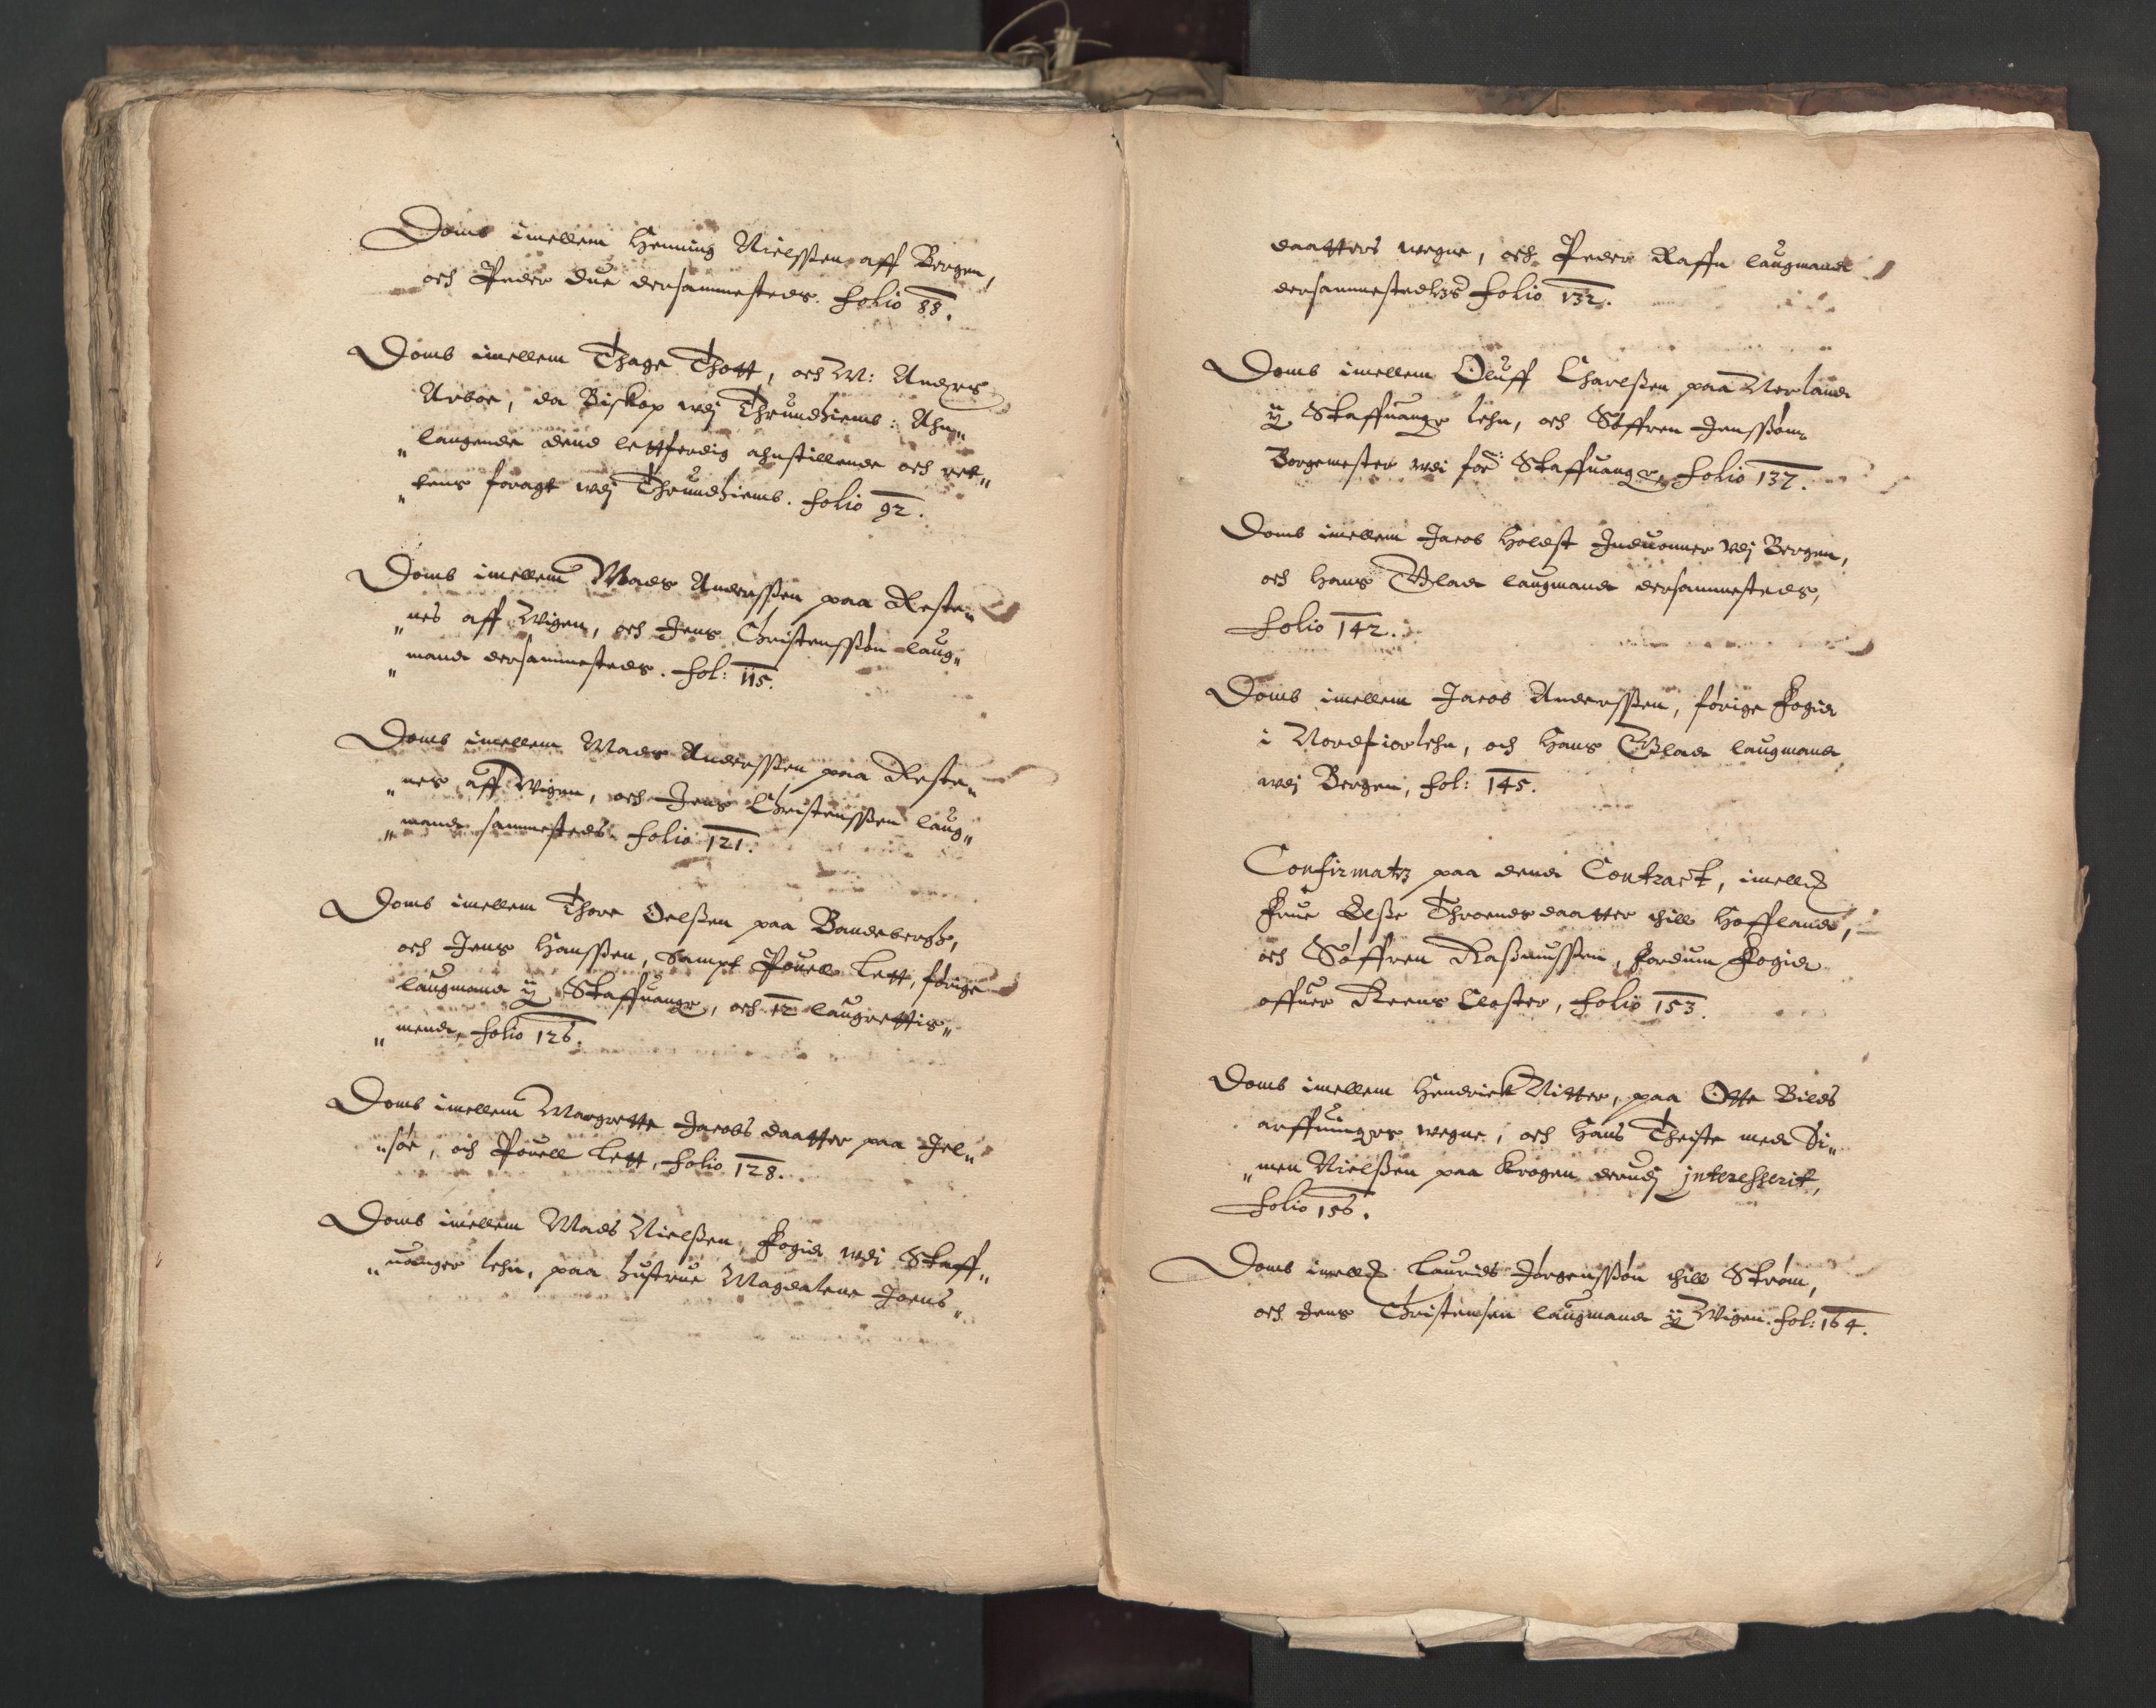 Domb imellem Henning Nielssen aff Bergen,
och Peder Due dersammesteds. folio 88.
Domb imellem Thage Thott, och M: Anders
Arboe, da Biskop udj Thrundhiemb: Ahn„
„langende dend lettferdig ahnstillende och ret„
„tens foragt udj Thrundhiemb. folio 92.
Domb imellem Mads Anderssen paa Reste„
„nes aff Wigen, och Jens Christenssøn laug„
„mand dersammesteds. fol: 115.
Domb imellem Mads Anderssen paa Reste„
„nes aff Wigen, och Jens Christenssen laug„
„mand sammesteds. folio 121.
Domb imellem Thore Oelssen paa
och Jens Hanssen, sampt Pouell Lett, förige
laugmand ÿ Staffuanger, och 12 laugrettis„
„mend, folio 126.
Domb imellem Margrette Jacobs daatter paa Jel„
„søe, och Pouell Lett, folio 128.
Domb imellem Mads Nielssen, Fogid udi Staff„
„uanger lehn, paa hustrue Magdalene Jens„
daatters wegne, och Peder Raffn laugmand
dersammestedtzs folio 132.
Domb imellem Oluff Charlssen paa Nerland
ÿ Staffuanger lehn, och Søffren Jenssøn
Borgemester udi for: Staffuanger, folio 137.
Domb imellem Jacob Holdst Induoner udj Bergen,
och Hans Glad laugmand dersammesteds,
folio 142.
Domb imellem Jacob Anderssen, förige Fogid
i Nordfiorlehn, och Hans Glad laugmand
udj Bergen, fol: 145.
Confirmatz paa dend Contract, imellem
Frue Elsse Throends daatter thill Hoffland,
och Søffren Rasmussen, fordum Fogid
offuer Reens Closter, folio 153.
Domb imellem Hendrick Nitter, paa Otte Bilds
arffuingers wegne, och Hans Theiste med Si„
„men Nielssen paa Krogen derudj interesserit,
folio 156.
Domb imellem Laurids Jørgenssøn thill Strøm,
och Jens Christensen laugmand ÿ Wigen. fol: 164.